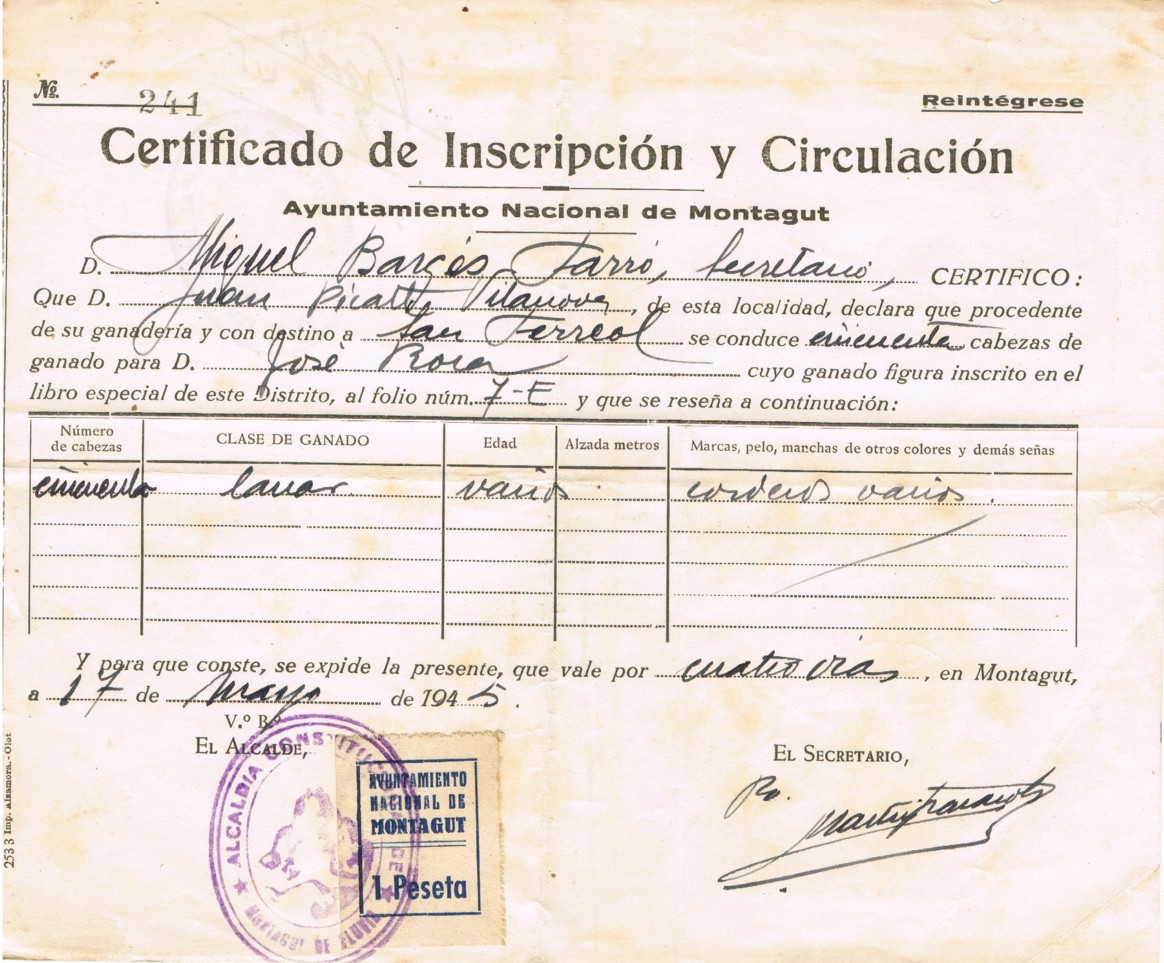 Nº. 241
Reintégrese
Certificado de Inscripción y Circulación
Ayuntamiento Nacional de Montagut
D. Miguel Bargés Farró, Secretario, CERTIFICO:
Que D. Juan Picart Vilanova, de esta localidad, declara que procedente
de su ganadería y con destino a San Ferreol se conduce cincuenta cabezas de
ganado para D. José Roca cuyo ganado figura inscrito en el
libro especial de este Distrito, al folio núm. 7-E y que se reseña a continuación:
Número de cabezas CLASE DE GANADO Edad Alzada metros Marcas, pelo, manchas de otros colores y demás señas
cincuenta lanar varios corderos varios.
Y para que conste, se expide la presente, que vale por cuatro días, en Montagut,
a 17 de mayo de 1945.
V.º B.º
EL ALCALDE,
EL SECRETARIO,
ALCALDIA CONSTITUCIONAL DE
MONTAGUT DE FLUVIA
AYUNTAMIENTO
NACIONAL DE
MONTAGUT
1 Peseta
253 3 Imp. Alzamora.-Olot